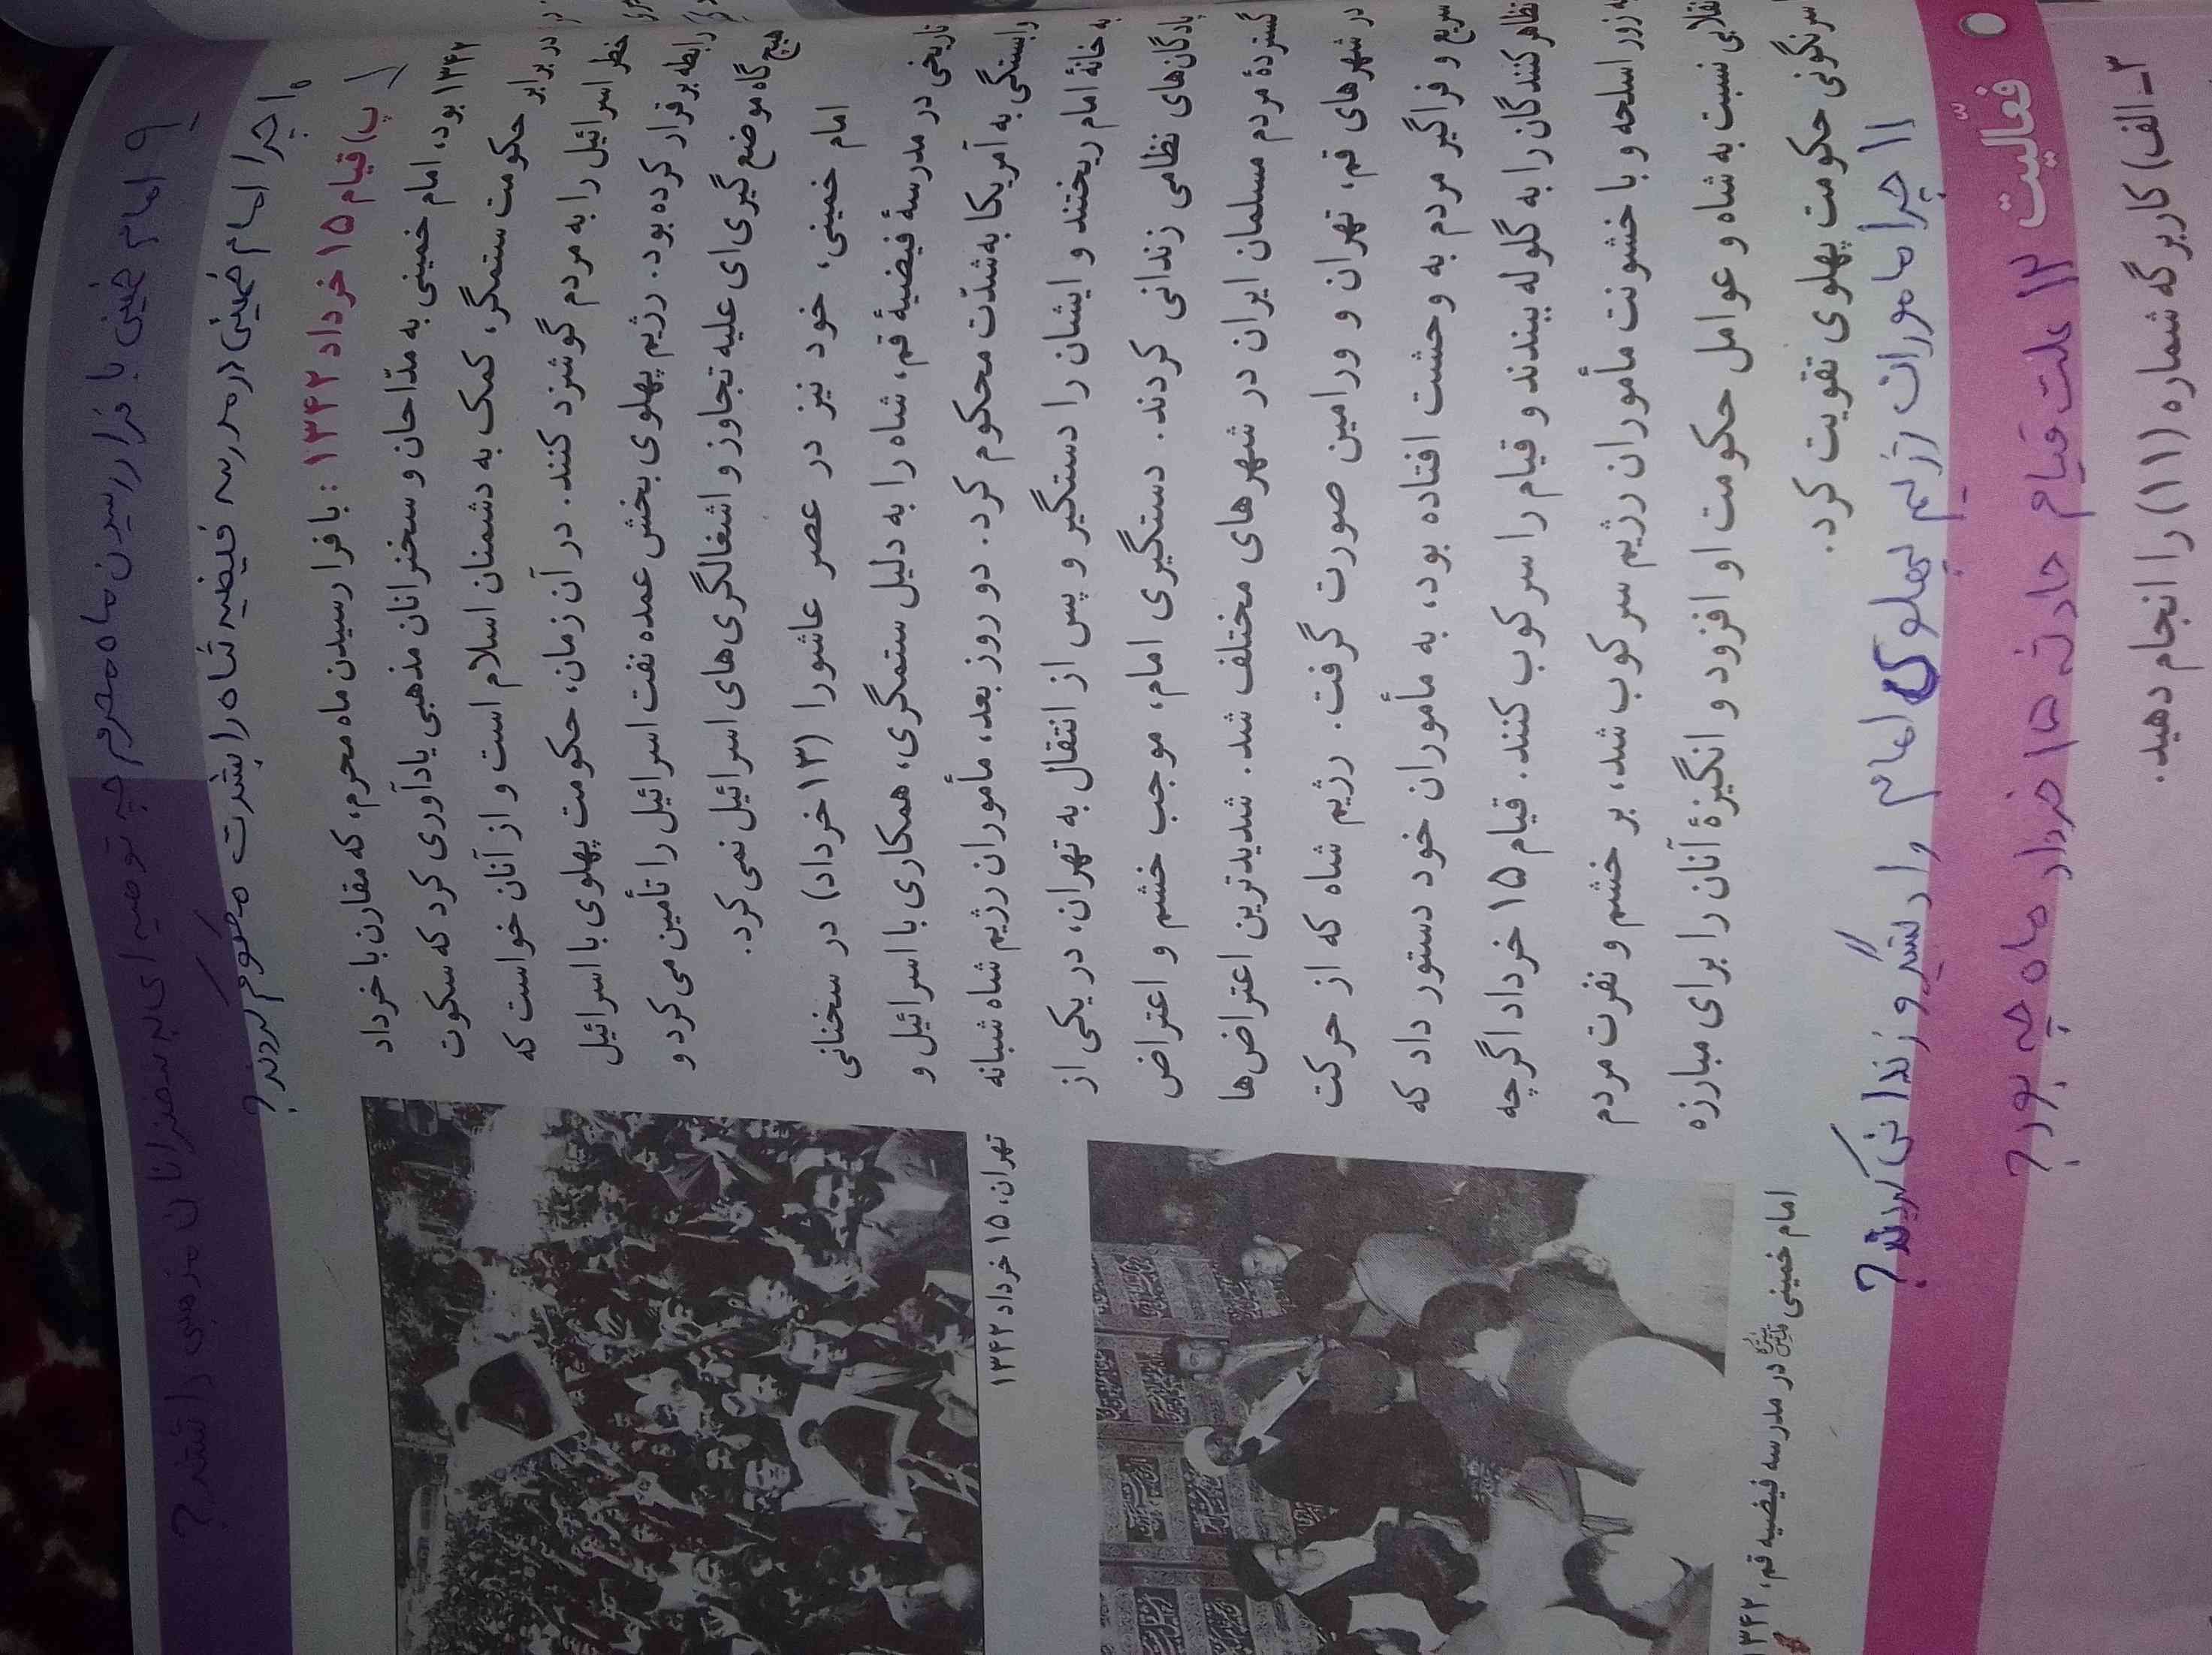 ۹ امام خمینی با فرا رسیدن ماه محرم چه توصیه ای به سخنرانان مذهبی داشتند؟
۱۰ چرا امام خمینی در مدرسه فیضیه شاه را بشدت محکوم کردند؟
پ) قیام ۱۵ خرداد ۱۳۴۲: با فرا رسیدن ماه محرم، که مقارن با خرداد
۱۳۴۲ بود، امام خمینی به مدّاحان و سخنرانان مذهبی یادآوری کرد که سکوت
در برابر حکومت ستمگر، کمک به دشمنان اسلام است و از آنان خواست که
خطر اسرائیل را به مردم گوشزد کنند. در آن زمان، حکومت پهلوی با اسرائیل
رابطه برقرار کرده بود. رژیم پهلوی بخش عمده نفت اسرائیل را تأمین می‌کرد و
هیچ گاه موضع گیری‌ای علیه تجاوز و اشغالگری‌های اسرائیل نمی‌کرد.
امام خمینی، خود نیز در عصر عاشورا (۱۳ خرداد) در سخنانی
تاریخی در مدرسهٔ فیضیهٔ قم، شاه را به دلیل ستمگری، همکاری با اسرائیل و
وابستگی به آمریکا به‌شدّت محکوم کرد. دو روز بعد، مأموران رژیم شاه شبانه
به خانهٔ امام ریختند و ایشان را دستگیر و پس از انتقال به تهران، در یکی از
پادگان‌های نظامی زندانی کردند. دستگیری امام، موجب خشم و اعتراض
گستردهٔ مردم مسلمان ایران در شهرهای مختلف شد. شدیدترین اعتراض‌ها
در شهرهای قم، تهران و ورامین صورت گرفت. رژیم شاه که از حرکت
سریع و فراگیر مردم به وحشت افتاده بود، به مأموران خود دستور داد که
تظاهرکنندگان را به گلوله ببندند و قیام را سرکوب کنند. قیام ۱۵ خرداد اگرچه
به زور اسلحه و با خشونت مأموران رژیم سرکوب شد، بر خشم و نفرت مردم
انقلابی نسبت به شاه و عوامل حکومت او افزود و انگیزهٔ آنان را برای مبارزه
سرنگونی حکومت پهلوی تقویت کرد.
تهران، ۱۵ خرداد ۱۳۴۲
امام خمینی در مدرسه فیضیه قم، ۱۳۴۲
۱۱ چرا ماموران رژیم پهلوی امام را دستگیر و زندانی کردند؟
فعّالیت
۱۲ علت قیام حادثه ۱۵ خرداد ماه چه بود؟
۳ـ الف) کاربرگه شماره (۱۱) را انجام دهید.